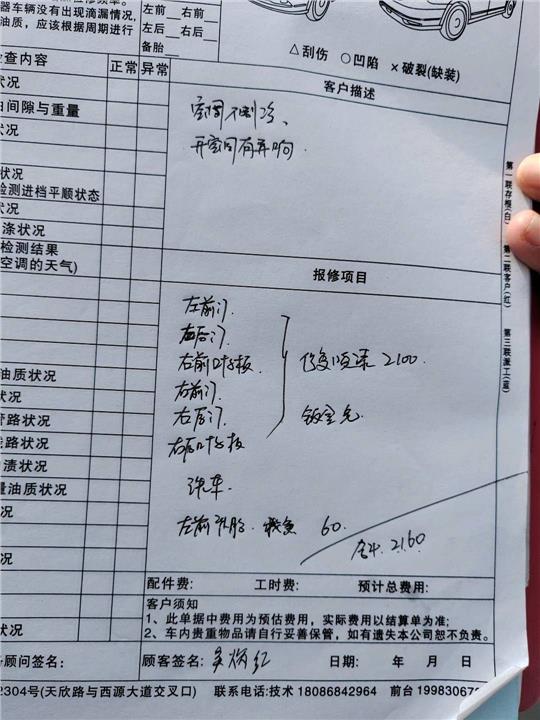 器车辆没有出现滴漏情况,
油质,应该根据周期进行
左前 右前
左后 右后
备胎
△刮伤 ○凹陷 ×破裂(缺装)
查内容 正常 异常
客户描述
状况
由间隙与重量
状况
空调不制冷、
开空调有异响.
状况
检测进档平顺状态
状况
涤状况
检测结果
空调的天气)
第一联存根(白) 第二联客户(红) 第三联派工(蓝)
报修项目
左前门
左后门
右前叶子板 修复喷漆 2100.
右前门
右后门 钣金
右后叶子板
洗车.
左前补胎. 60.
合计. 2160
油质状况
状况
管路状况
线路状况
渍状况
量油质状况
况
况
状况
配件费: 工时费: 预计总费用:
客户须知
1、此单据中费用为预估费用,实际费用以结算单为准;
2、车内贵重物品请自行妥善保管,如有遗失本公司恕不负责。
顾问签名: 顾客签名: 日期: 年 月 日
2304号(天欣路与西源大道交叉口) 联系电话:技术 18086842964 前台 19983067